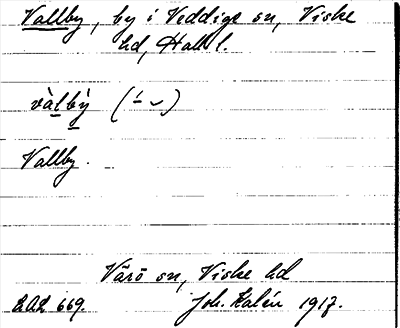 Vallby, by i Veddige sn, Viske
hd, Hall l.
vàlbý (–́ ⌣)
Vallby.
Värö sn, Viske hd
LAL 669. Joh. Kalén 1917.